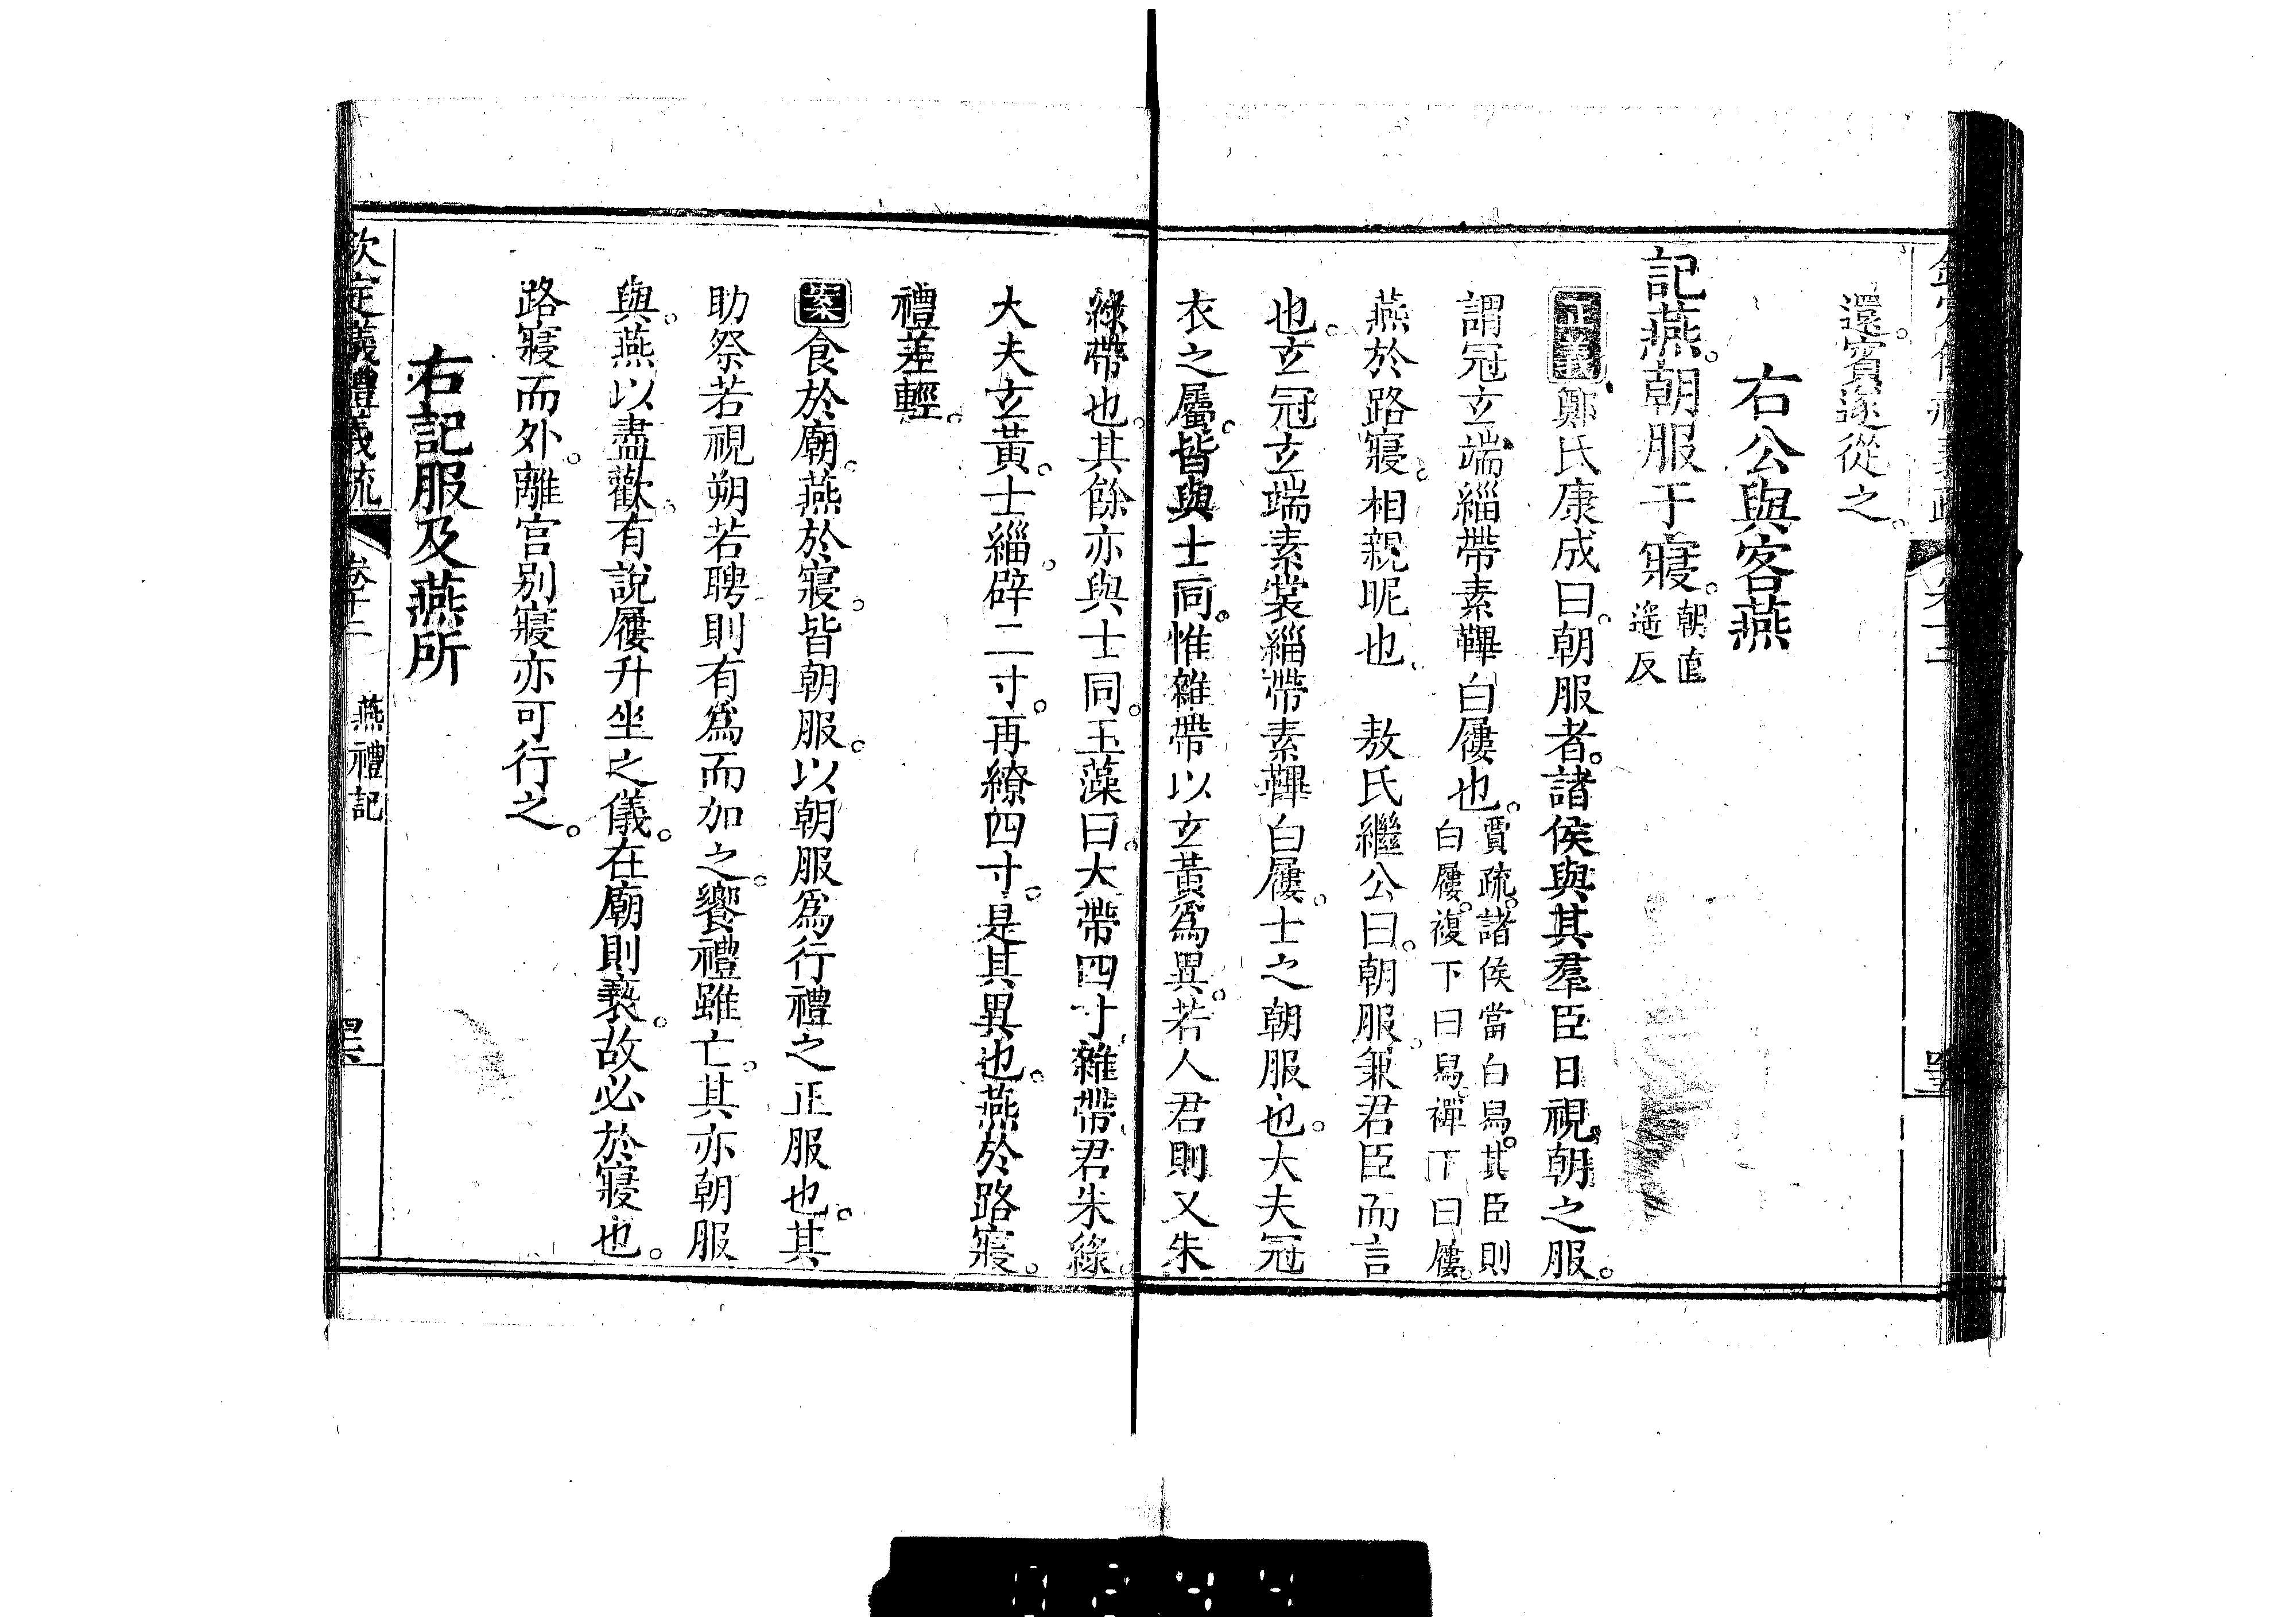 還。賓遂從之。
右公與客燕
記燕。朝服于寢。朝直遙反
正義鄭氏康成曰。朝服者。諸侯與其羣臣日視朝之服。
謂冠玄端緇帶素韠白屨也。賈疏。諸侯當白舄。其臣則白屨。複下曰舄。襌下曰屨。
燕於路寢。相親昵也。 敖氏繼公曰。朝服。兼君臣而言
也。玄冠玄端素裳緇帶素韠白屨。士之朝服也。大夫冠
衣之屬。皆與士同。惟雜帶以玄黃爲異。若人君則又朱
綠帶也。其餘亦與士同。玉藻曰。大帶四寸。雜帶。君朱綠。
大夫玄黃。士緇。辟二寸。再繚四寸。是其異也。燕於路寢。
禮差輕。
案食於廟。燕於寢。皆朝服。以朝服爲行禮之正服也。其
助祭若視朔若聘則有爲而加之。饗禮雖亡。其亦朝服
與。燕以盡歡。有說屨升坐之儀。在廟則褻。故必於寢也。
路寢而外。離宮別寢亦可行之。
右記服及燕所
欽定儀禮義疏 卷十二 燕禮記